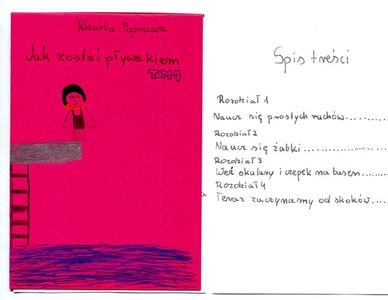 Klaudia Poprawa
Jak zostać pływakiem
TOM 1
Spis treści
Rozdział 1
Naucz się prostych ruchów.....
Rozdział 2
Naucz się żabki................
Rozdział 3
Weź okulary i czepek na basen.....
Rozdział 4
Teraz zaczynamy od skoków....